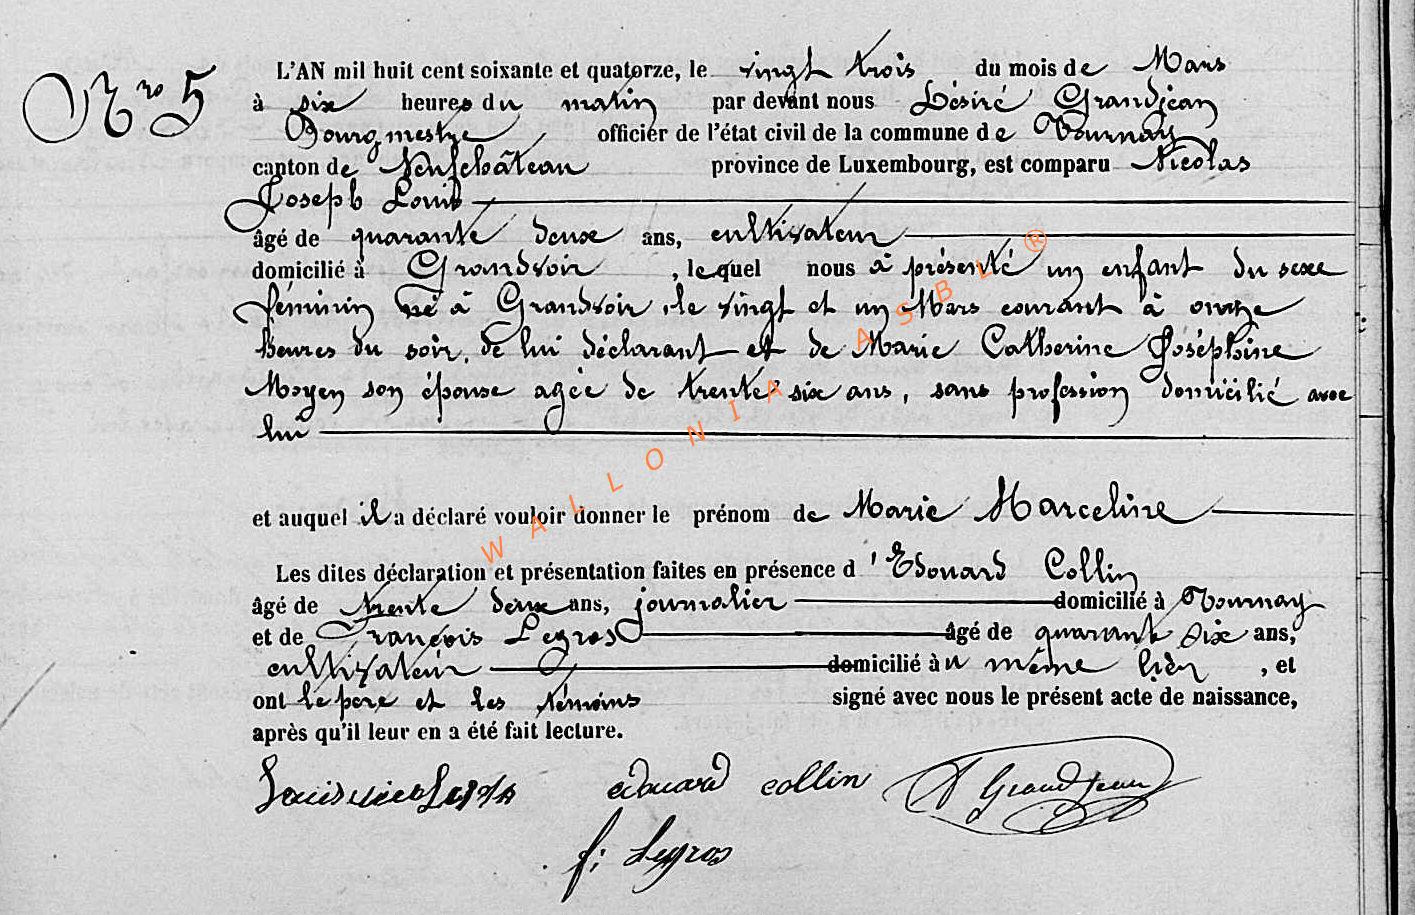 Nro 5
L'AN mil huit cent soixante et quatorze, le vingt trois du mois de Mars
à six heures du matin par devant nous Désiré Grandjean
Bourgmestre officier de l'état civil de la commune de Tournay
canton de Neufchâteau province de Luxembourg, est comparu Nicolas
Joseph Louis
âgé de quarante deux ans, cultivateur
domicilié à Grandvoir, lequel nous à présenté un enfant du sexe
féminin né à Grandvoir, le vingt et un Mars courant à onze
heures du soir, de lui déclarant et de Marie Catherine Joséphine
Moyen son épouse agée de trente six ans, sans profession domicilié avec
lui
et auquel il a déclaré vouloir donner le prénom de Marie Marceline
Les dites déclaration et présentation faites en présence d'Edouard Collin
âgé de trente deux ans, journalier domicilié à Tournay
et de François Legros âgé de quarante six ans,
cultivateur domicilié àu même lieu, et
ont le père et les témoins signé avec nous le présent acte de naissance,
après qu'il leur en a été fait lecture.
Louis edouard collin D Grandjean
f: Legros
WALLONIA ASBL ®